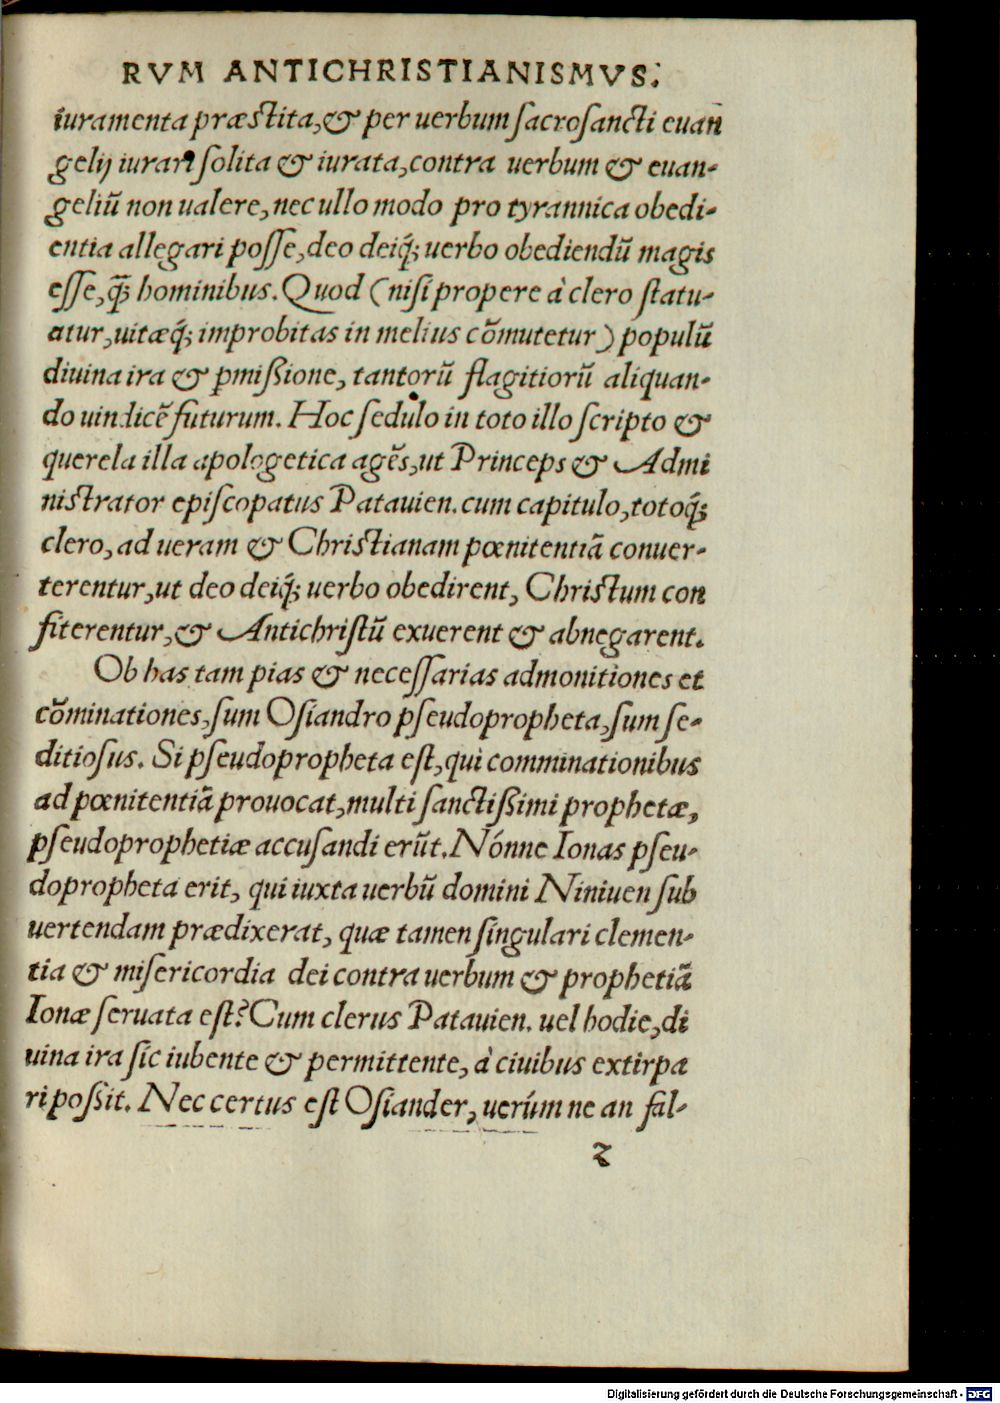 RVM ANTICHRISTIANISMVS.
iuramenta præstita, & per uerbum sacrosancti euan
gelij iurari solita & iurata, contra uerbum & euan-
geliũ non ualere, nec ullo modo pro tyrannica obedi-
entia allegari posse, deo deiq́; uerbo obediendũ magis
esse, q̃ȝ hominibus. Quod (nisi propere à clero statu-
atur, uitæq́; improbitas in melius cõmutetur) populũ
diuina ira & ꝑmißione, tantorũ flagitiorũ aliquan-
do uindicẽ futurum. Hoc sedulo in toto illo scripto &
querela illa apologetica agẽs, ut Princeps & Admi
nistrator episcopatus Patauien. cum capitulo, totoq́;
clero, ad ueram & Christianam pœnitentiã conuer-
terentur, ut deo deiq́; uerbo obedirent, Christum con
fiterentur, & Antichristũ exuerent & abnegarent.
Ob has tam pias & necessarias admonitiones et
cõminationes, sum Osiandro pseudopropheta, sum se-
ditiosus. Si pseudopropheta est, qui comminationibus
ad pœnitentiã prouocat, multi sanctißimi prophetæ,
pseudoprophetiæ accusandi erũt. Nónne Ionas pseu-
dopropheta erit, qui iuxta uerbũ domini Niniuen sub
uertendam prædixerat, quæ tamen singulari clemen-
tia & misericordia dei contra uerbum & prophetiã
Ionæ seruata est? Cum clerus Patauien. uel hodie, di
uina ira sic iubente & permittente, à ciuibus extirpa
ri poßit. Nec certus est Osiander, uerúm ne an fal-
z
Digitalisierung gefördert durch die Deutsche Forschungsgemeinschaft - DFG